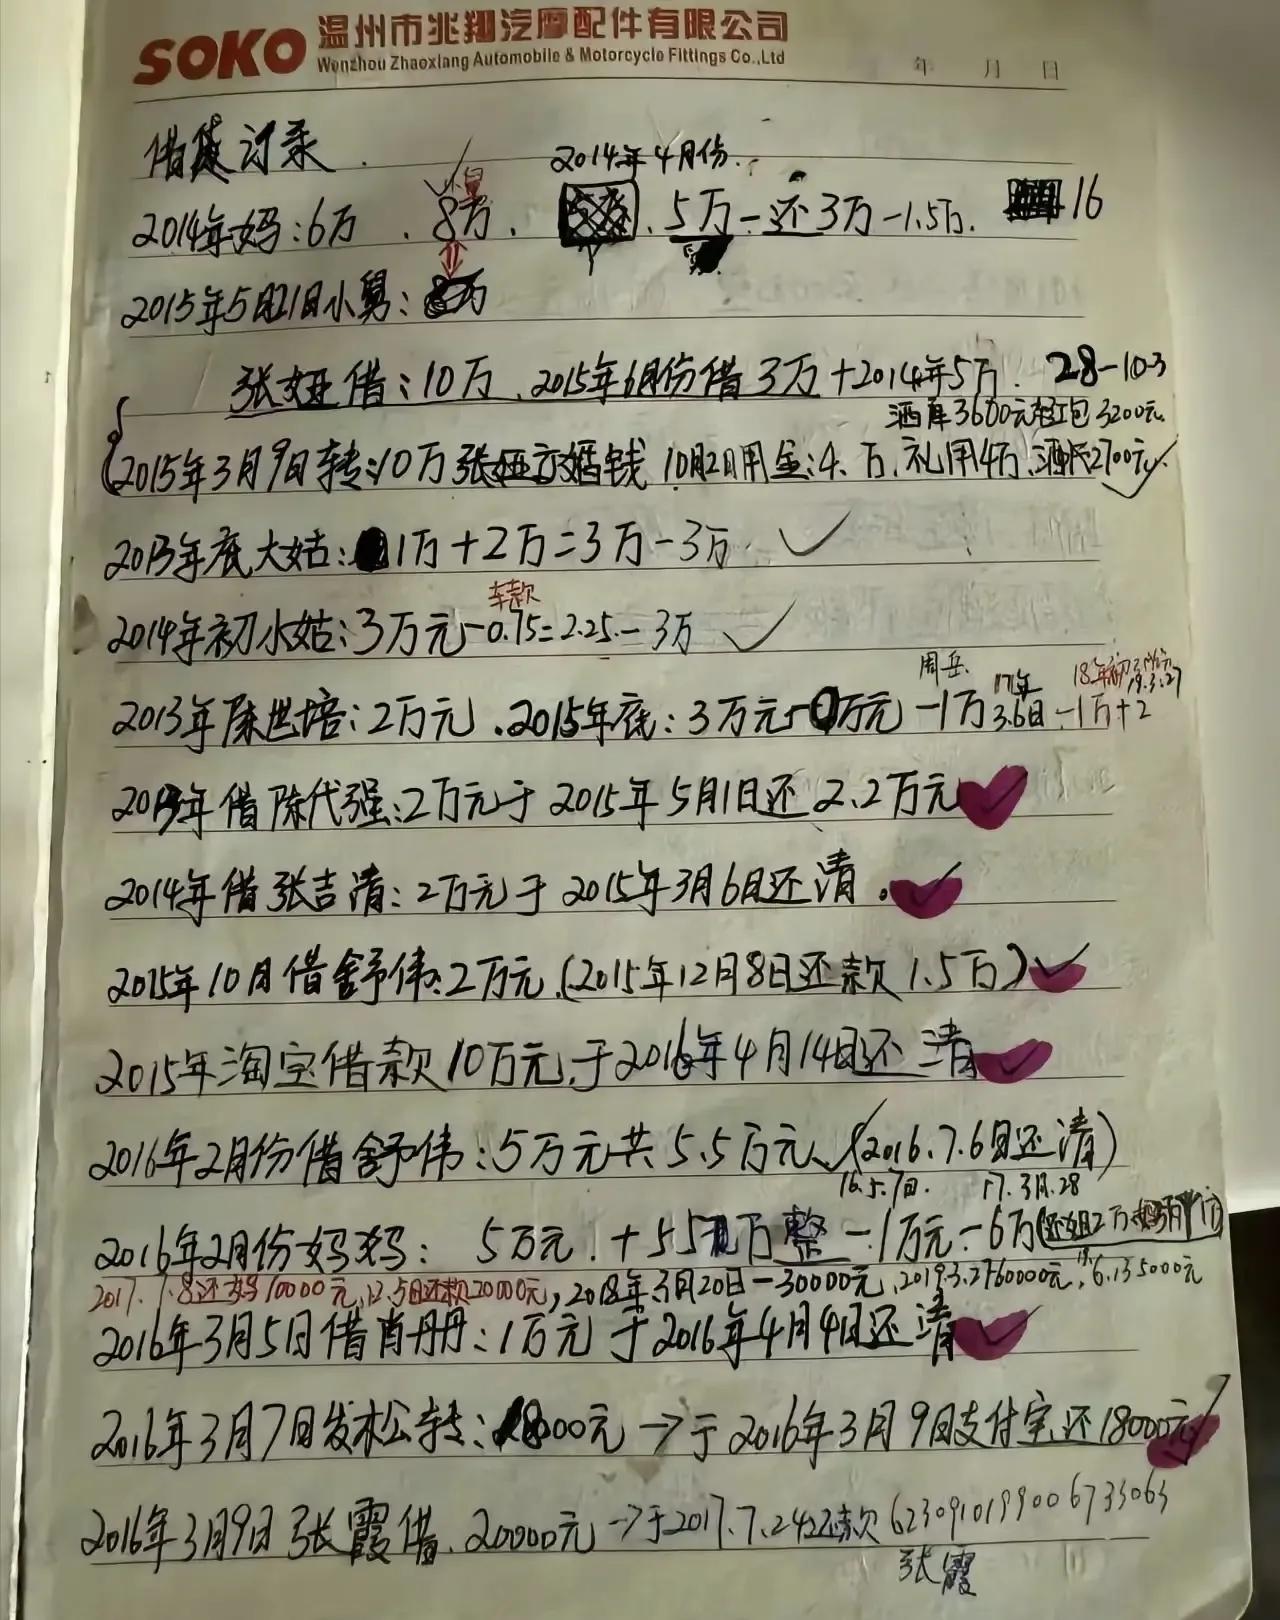 SOKO 温州市兆翔汽摩配件有限公司
Wenzhou Zhaoxiang Automobile & Motorcycle Fittings Co.,Ltd
年 月 日
借贷记录
2014年4月份
2014年妈:6万 8万 5万-还3万-1.5万 16
2015年5月21日小舅: 8万
张娅借:10万 2015年6月份借3万+2014年5万 28-10-3
3600元 红包3200元
2015年3月9日转:10万张娅 婚钱 10月2日用金:4万 礼用4万 2700元
2013年底大姑:1万+2万=3万-3万
车款
2014年初小姑:3万元-0.75=2.25-3万
周岳 17年 18年初 19.3.27
2013年陈世培:2万元.2015年底:3万元 万元-1万 3.6日-1万+2
2013年借陈代强:2万元于2015年5月1日还2.2万元
2014年借张吉清:2万元于2015年3月6日还清.
2015年10月借舒伟:2万元.(2015年12月8日还款1.5万)
2015年淘宝借款10万元.于2016年4月14日还清
2016年2月份借舒伟:5万元共5.5万元(2016.7.6日还清)
16.5.7日. 17.3月.28
2016年2月份妈妈: 5万元.+5.5 万整-1万元-6万(还姐2万
2017.7.8还妈10000元,12.5日还款20000元,2018年3月20日-30000元,2019.3.27 60000元, 6.13 5000元
2016年3月5日借肖丹丹:1万元于2016年4月4日还清
2016年3月7日发松转:18000元→于2016年3月9日支付宝还18000元
2016年3月9日张霞借.20000元→于2017.7.24还款6230910199006733063
张霞